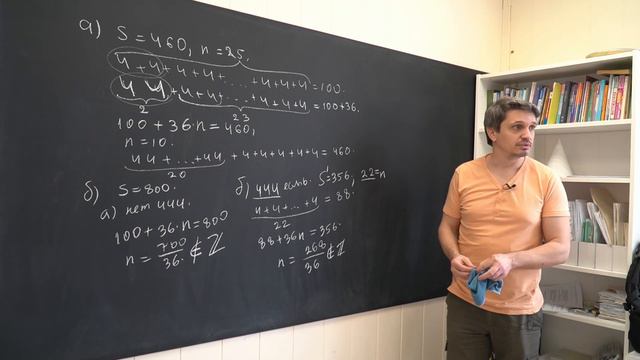 а) S=460, n=25.
4+4+4+4+...+4+4+4=100.
44+4+4+...+4+4+4=100+36.
2 23
100+36·n=460,
n=10.
44+...+44+4+4+4+4+4=460.
20
б) S=800.
а) нет 444.
100+36·n=800
n=700/36 ∉ ℤ
б) 444 есть. S=356, 22=n
4+4+...+4=88.
22
88+36n=356.
n=268/36 ∉ ℤ